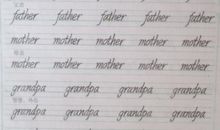 father father father father father
mother mother mother mother mother
mother mother mother mother mother
grandpa grandpa grandpa grandpa
grandpa grandpa grandpa grandpa